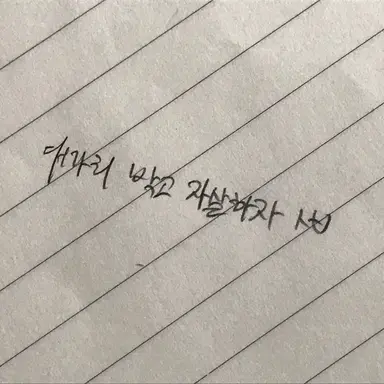 대가리 박고 자살하자 시발